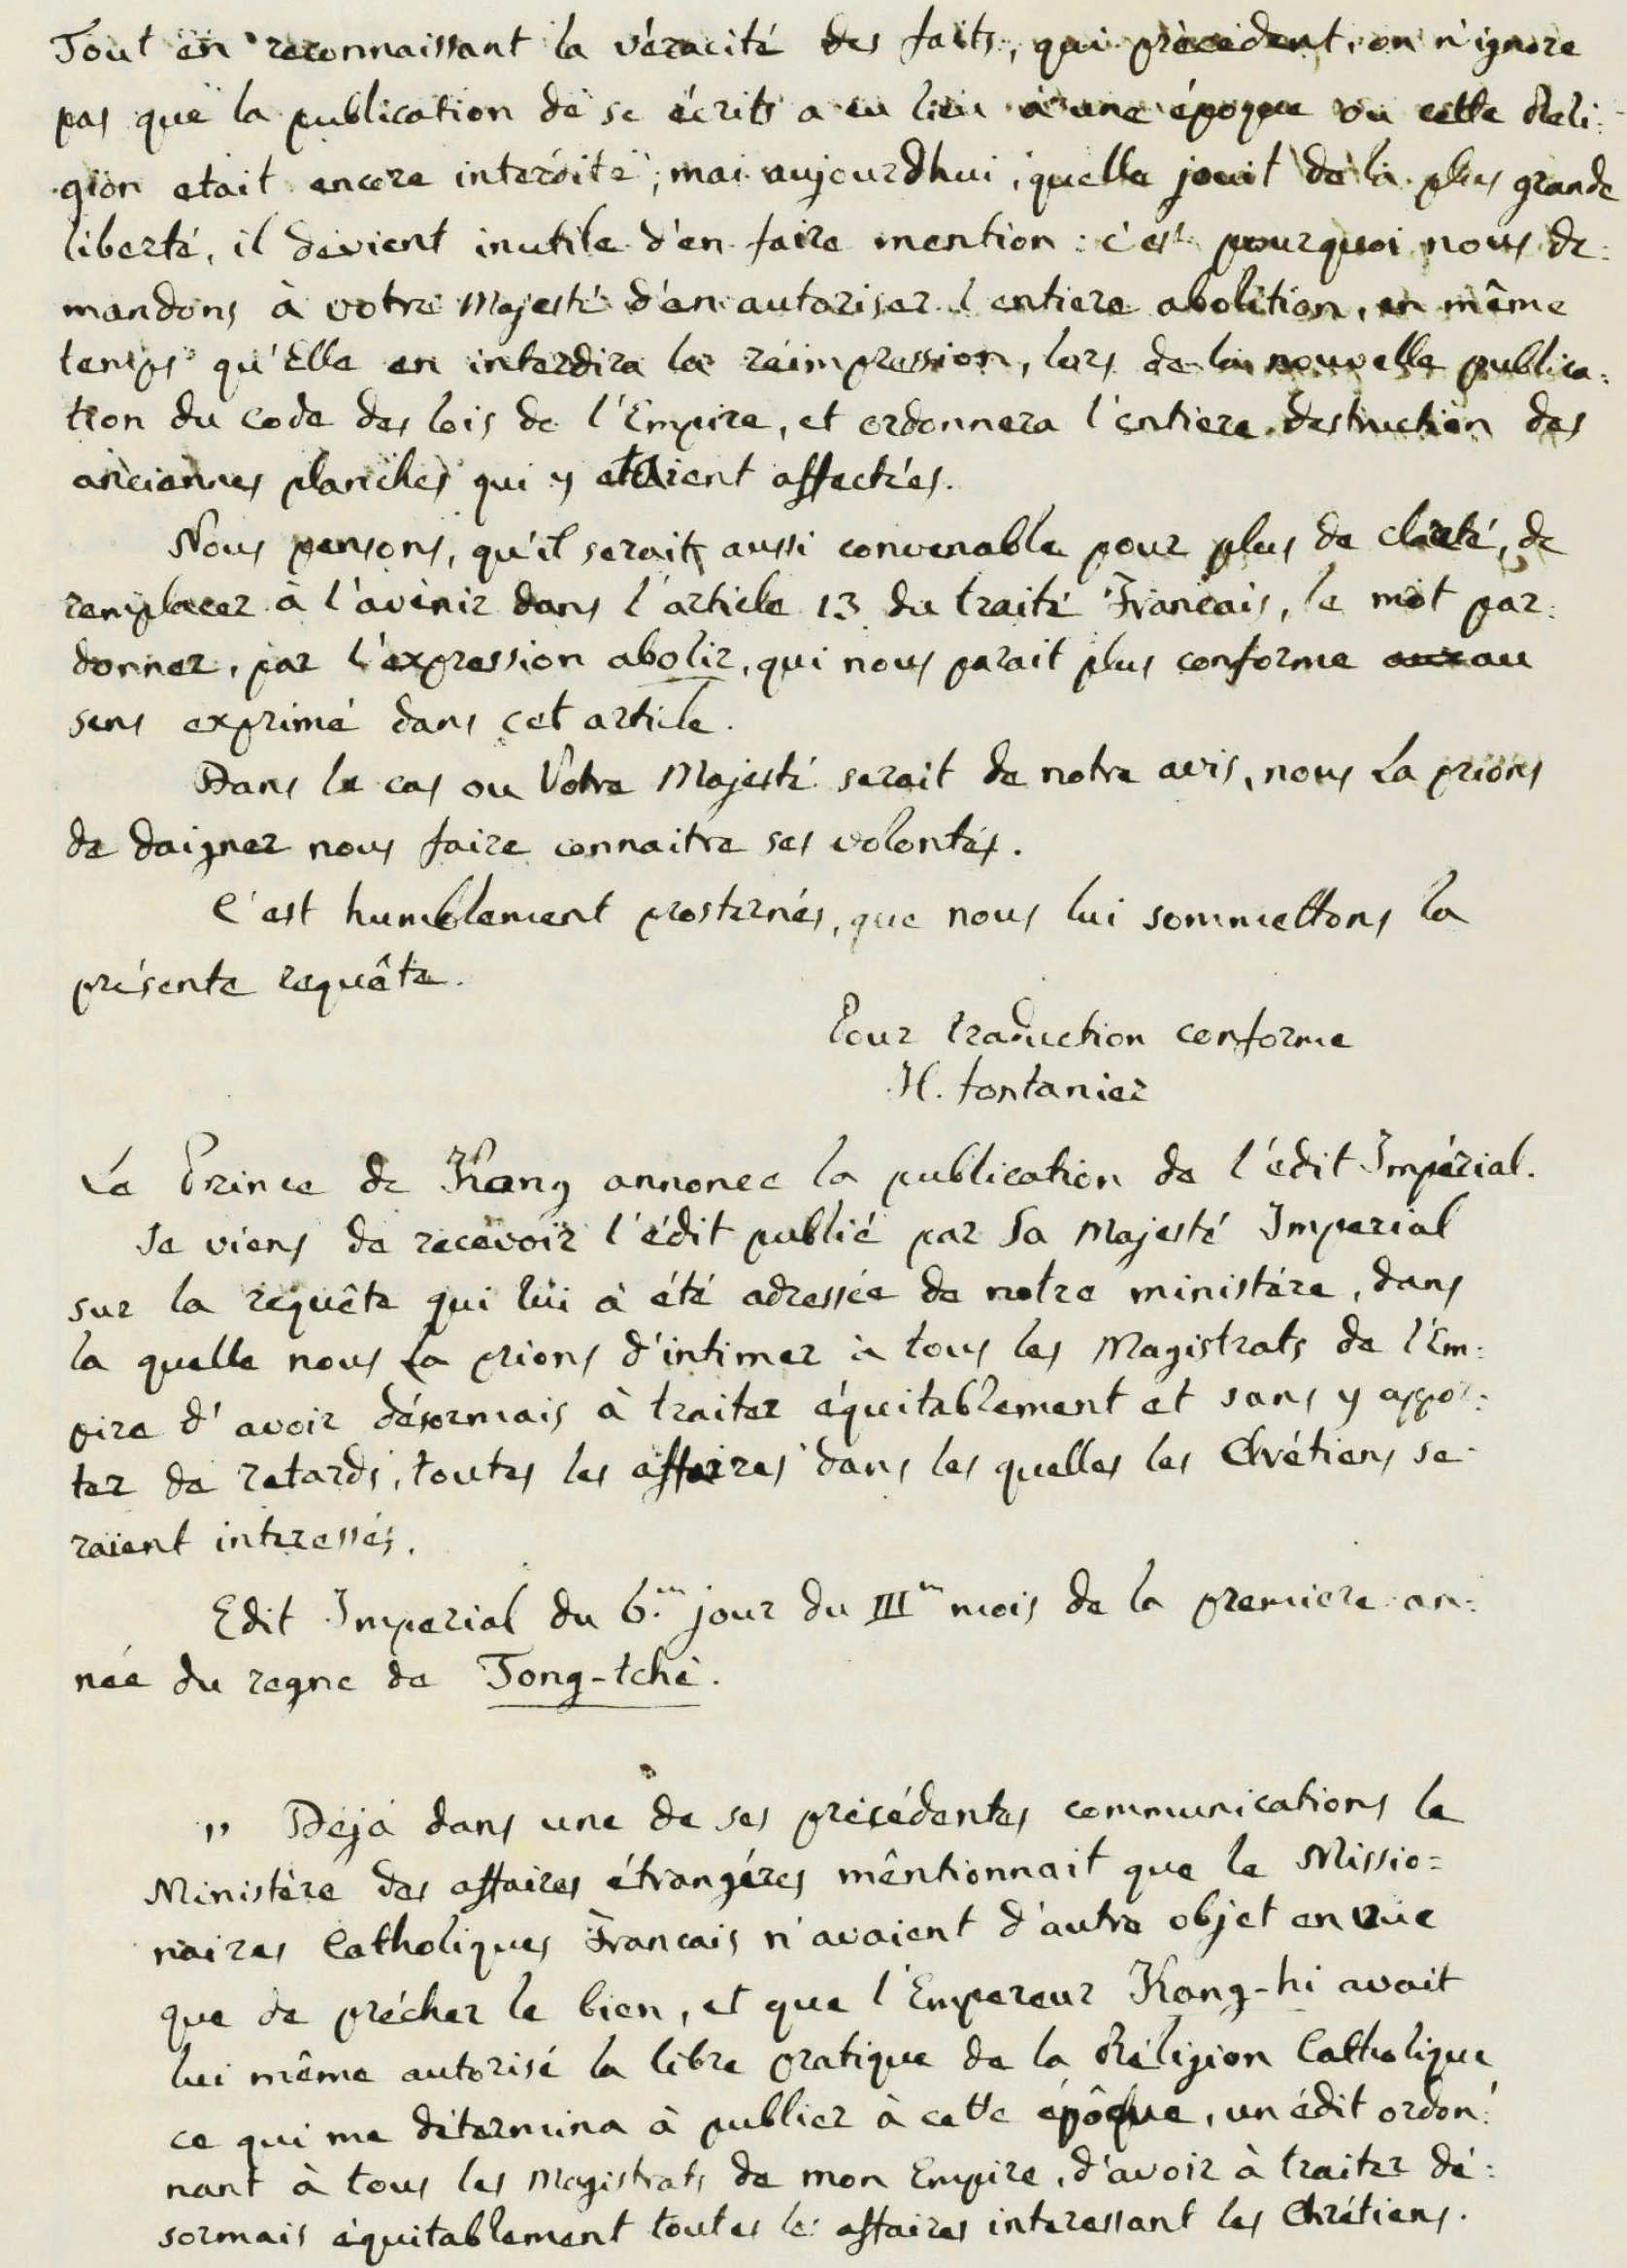 Tout en reconnaissant la véracité des faits, qui précedent, on n'ignore
pas que la publication de se écrits a eu lieu à une époque ou cette Reli:
gion etait encore interdite; mai aujourdhui, quelle jouit de la plus grande
liberté, il devient inutile d'en faire mention: c'est pourquoi nous de:
mandons à votre Majesté d'en autoriser l entiere abolition, en même
temps qu'Elle en interdira la réimpression, lors de la nouvelle publica:
tion du Code des lois de l'Empire, et ordonnera l'entiere destruction des
anciennes planches qui y etaient affectées.
Nous pensons, qu'il serait aussi convenable pour plus de clarté, de
remplacer à l'avenir dans l'article 13 du traité Francais, le mot par:
donner, par l'expression abolir, qui nous parait plus conforme au
sens exprimé dans cet article.
Dans le cas ou Votre Majesté serait de notre avis, nous La prions
de daigner nous faire connaitre ses volontés.
C'est humblement prosternés, que nous lui sommettons la
présente requête.
Pour traduction conforme
H. fontanier
Le Prince de Kong annonce la publication de l'édit Impérial.
Je viens de recevoir l'édit publié par Sa Majesté Imperial
sur la requête qui lui à été adressée de notre ministére, dans
la quelle nous La prions d'intimer à tous les Magistrats de l'Em:
pire d'avoir désormais à traiter équitablement et sans y appor:
ter de retards, toutes les affaires dans les quelles les Chrétiens se
raient interessés.
Edit Imperial du 6.m jour du IIIm mois de la premiere an:
née du regne de Tong-tché.
" Déja dans une de ses précédentes communications le
Ministère des affaires étrangéres mêntionnait que le Missio=
naires Catholiques Francais n'avaient d'autre objet en vue
que de précher le bien, et que l'Empereur Kang-hi avait
lui même autorisé la libre pratique de la Réligion Catholique
ce qui me détermina à publier à cette épôque, un édit ordon:
nant à tous les Magistrats de mon Empire, d'avoir à traiter dé:
sormais équitablement toutes les affaires interessant les Chrétiens.